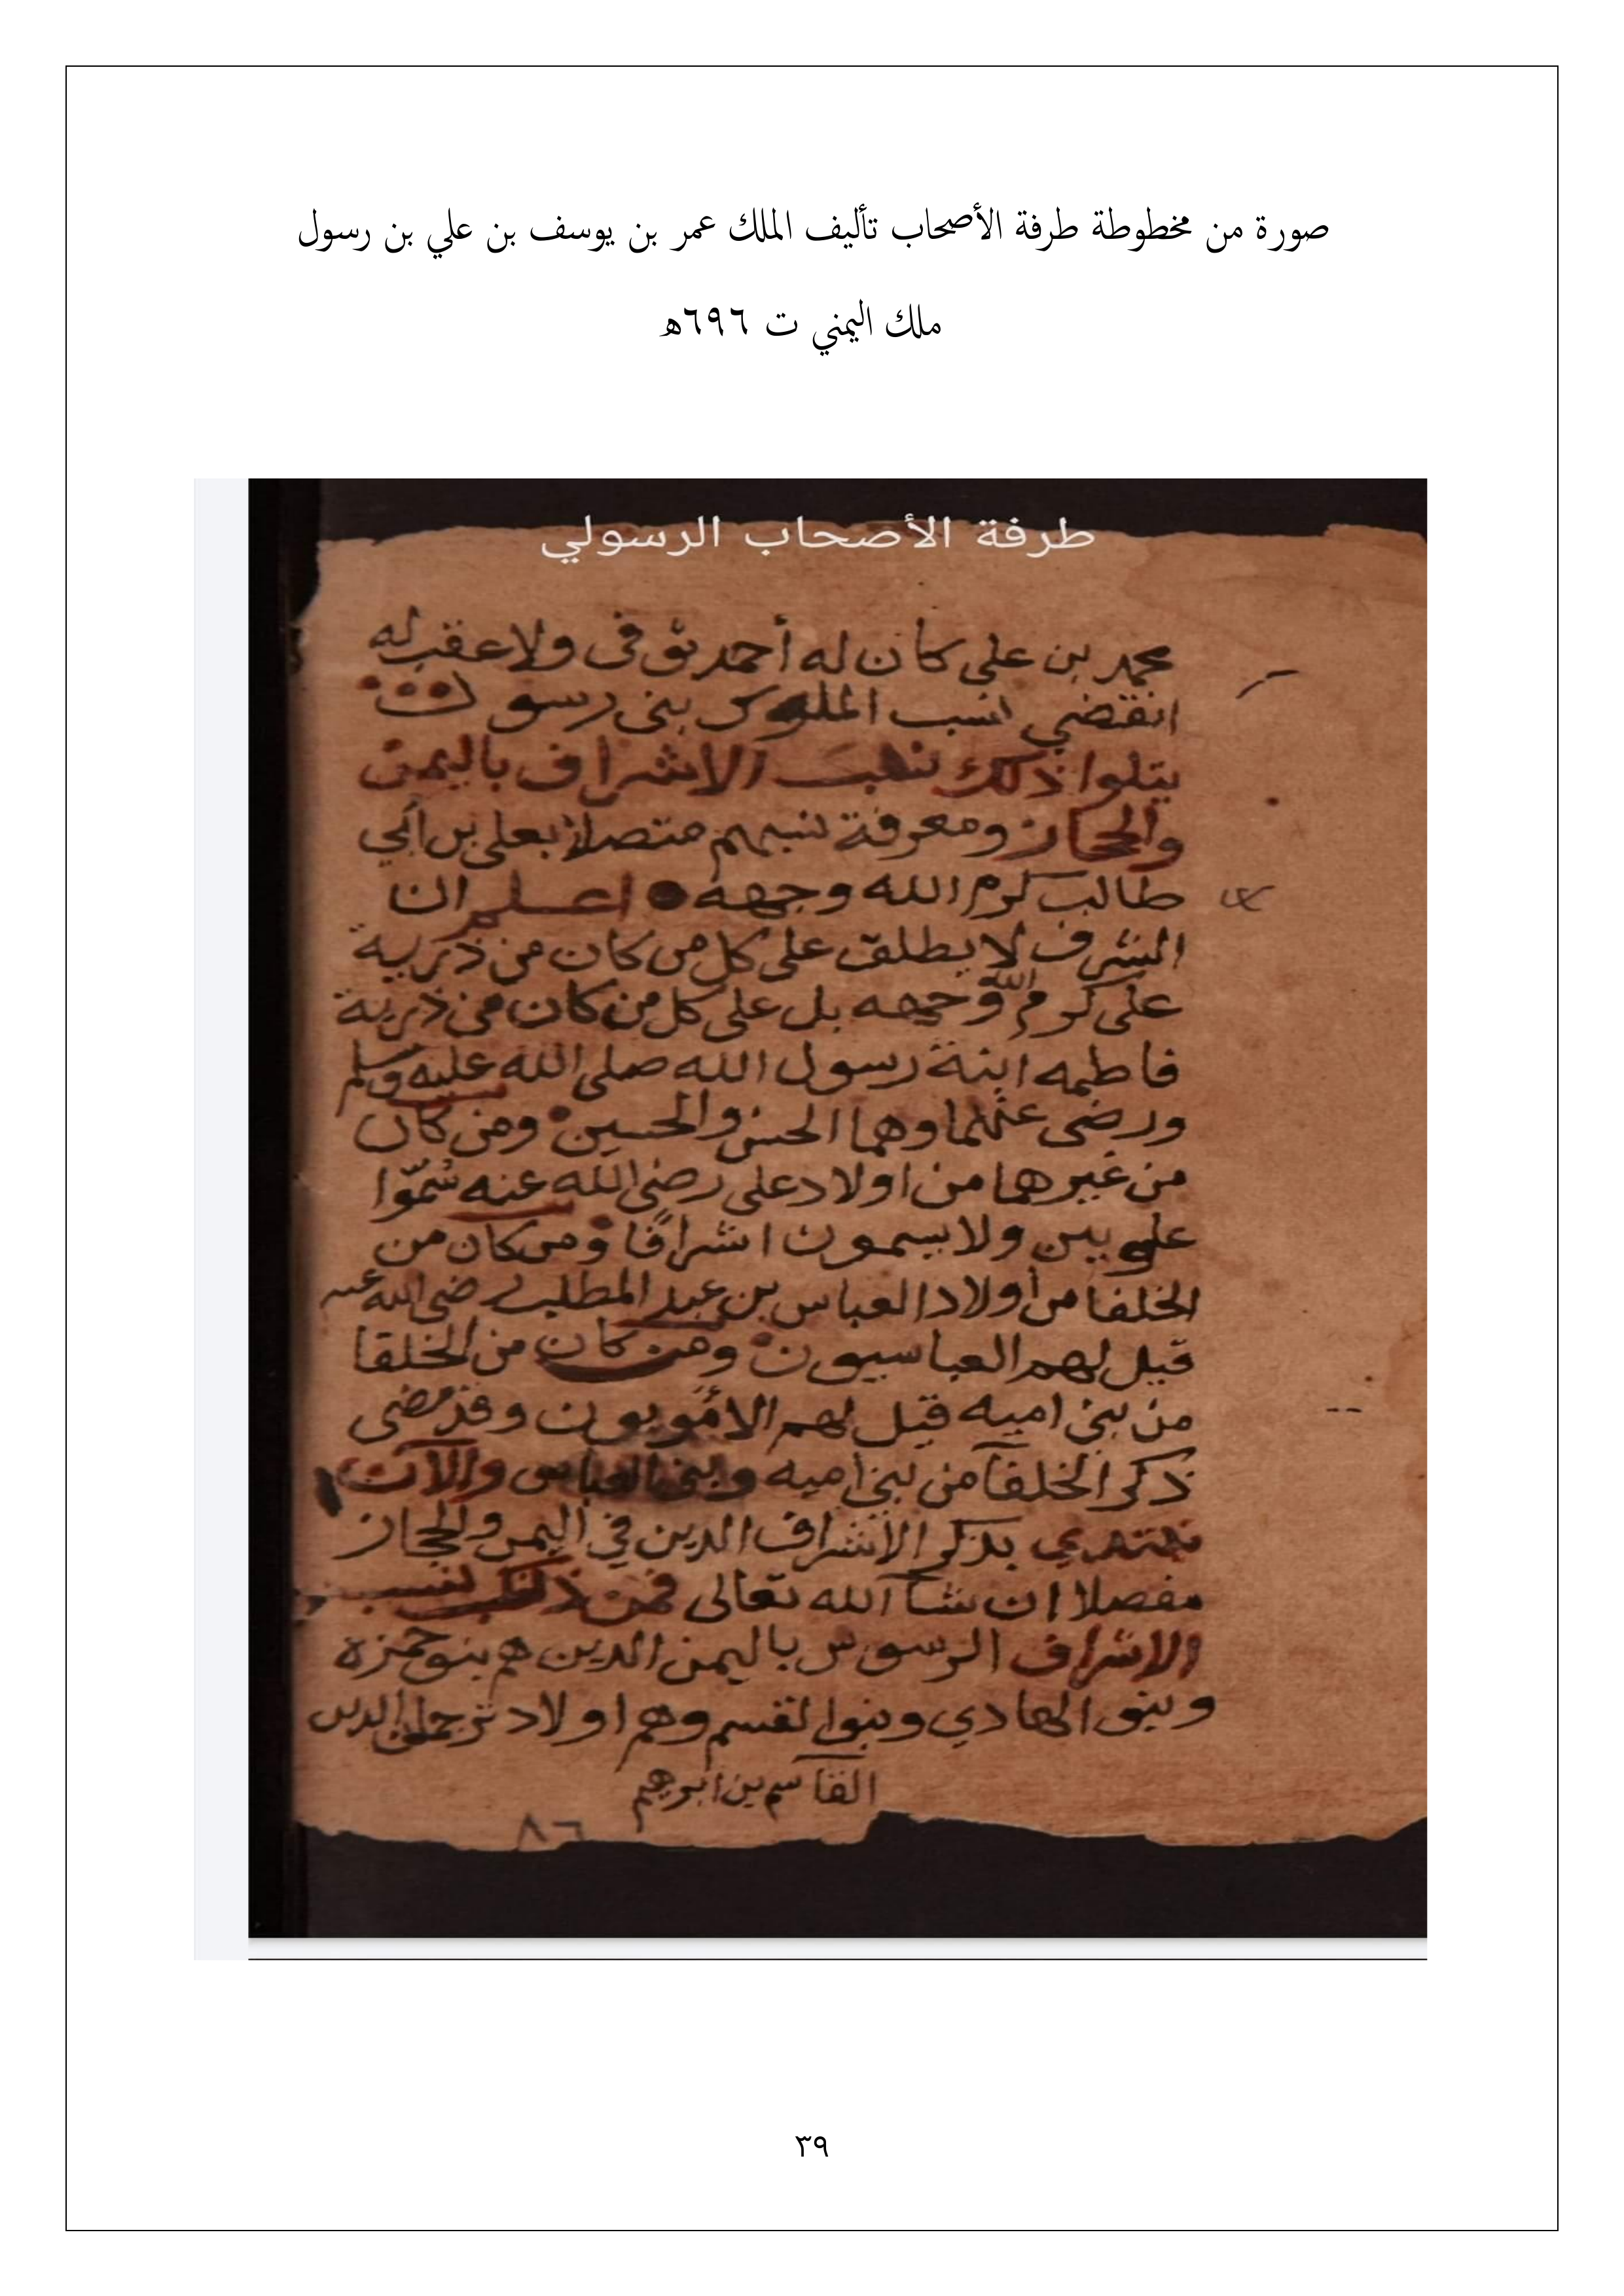 صورة من مخطوطة طرفة الأصحاب تأليف الملك عمر بن يوسف بن علي بن رسول
ملك اليمني ت ٦٩٦هـ
طرفة الأصحاب الرسولي
محمد بن علي كان له أحمد توفى ولا عقب له
انقضي نسب الملوك بنى رسول
يتلوا ذلك نسب الاشراف باليمن
والحجاز ومعرفة نسبهم متصلا بعلي بن أبي
طالب كرم الله وجهه اعلم ان
الشرف لا يطلق على كل من كان من ذرية
على كرم الله وجهه بل على كل من كان من ذرية
فاطمه ابنة رسول الله صلى الله عليه وسلم
ورضى عنهما وهما الحسن والحسين ومن كان
من غيرهما من اولاد على رضى الله عنه سُمّوا
علويين ولا يسمون اشرافًا ومن كان من
الخلفا من أولاد العباس بن عبد المطلب رضى الله عنه
قيل لهم العباسيون ومن كان من الخلفا
من بنى اميه قيل لهم الأمويون وقد مضى
ذكر الخلفآ من بنى اميه وبنى العباس والآن
نبتدي بذكر الأشراف الذين في اليمن والحجاز
مفصلا ان شآ الله تعالى فمن ذلك نسب
الاشراف باليمن الذين هم بنو حمزه
وبنو الهادي وبنوا لقسم وهم اولاد ترجمان الدين
القاسم بن ابرهيم
٨٦
٣٩